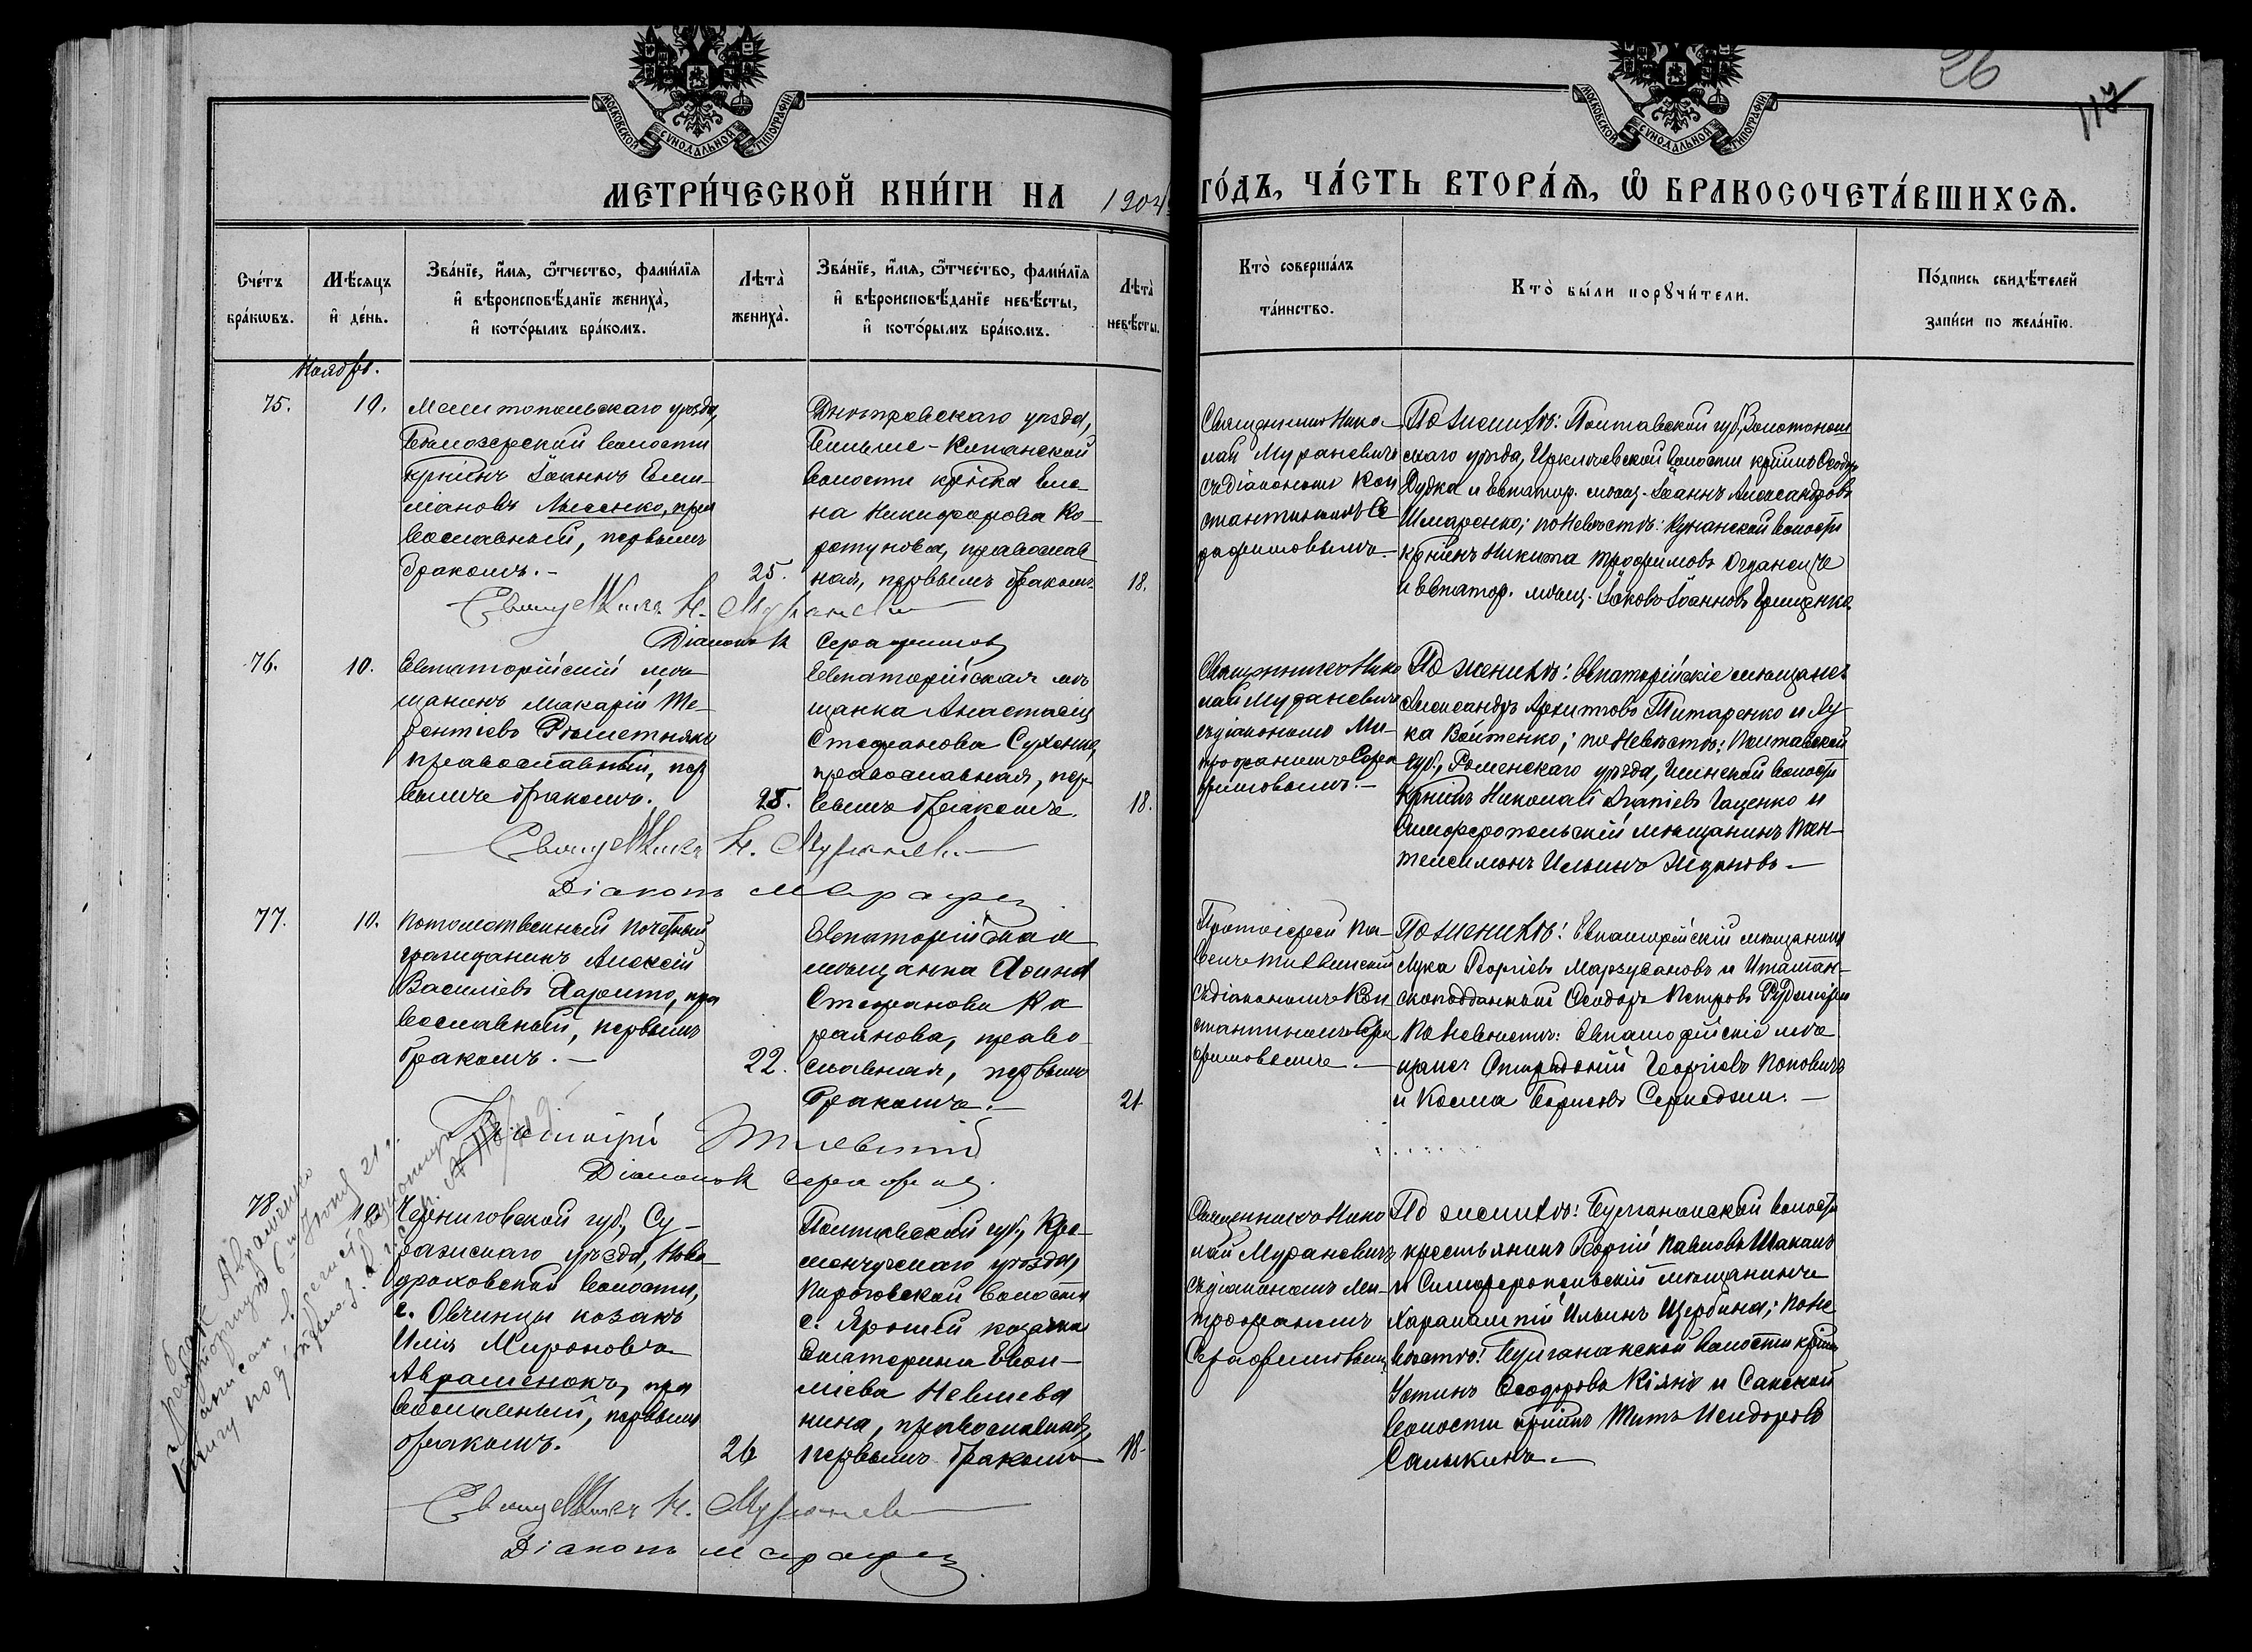 26
117
МОСКОВСКОЙ СѴНОДАЛЬНОЙ ТИПОГРАФІИ
МОСКОВСКОЙ СѴНОДАЛЬНОЙ ТИПОГРАФІИ
МЕТРИ́ЧЕСКОЙ КНИ́ГИ НА 1904
ГО́ДЪ, ЧА́СТЬ ВТОРА́Ѧ, Ѽ БРАКОСОЧЕТА́ВШИХСѦ.
Сче́тъ
бра́кωвъ.
Мѣ́сяцъ
и҆ де́нь.
Зва́нїе, и҆́мѧ, ѻ҆́тчество, фами́лїѧ
и҆ вѣроисповѣ́данїе жениха̀,
и҆ кото́рымъ бра́комъ.
Лѣта̀
жениха̀.
Зва́нїе, и҆́мѧ, ѻ҆́тчество, фами́лїѧ
и҆ вѣроисповѣ́данїе невѣ́сты,
и҆ кото́рымъ бра́комъ.
Лѣта̀
невѣ́сты.
Кто̀ соверша́лъ
та́инство.
Кто̀ бы́ли порꙋчи́тели.
По́дпись свидѣ́телей
за́писи по жела́нїю.
Ноябрь.
75.
10.
Мелитопольскаго уѣзда,
Бѣлозерской волости
кр‑нинъ Іоаннъ Еми-
ліановъ Лысенко, пра
вославный, первымъ
бракомъ. –
25.
Днѣпровскаго уѣзда,
Больше-Копанской
волости кр‑нка Еле-
на Никифорова Ко-
ротунова, православ
ная, первымъ бракомъ
18.
Священникъ Нико-
лай Мураневичъ
съ діакономъ Кон
стантиномъ Се
рафимовымъ. –
По женихѣ: Полтавской губ., Золотонош
скаго уѣзда, Ирклѣевской волости кр‑нинъ Ѳеодоръ
Дудка и Евпатор. мѣщ. Іоаннъ Александровъ
Шмаренко; по невѣстѣ: волости
кр‑нинъ Никита Трофимовъ
и Евпатор. мѣщ. Іаковъ Іоанновъ Грищенко
Священникъ Н. Мураневичъ
Діаконъ К Серафимовъ
76.
10.
Евпаторійскій мѣ-
щанинъ Макарій Те-
рентіевъ Рѣшетнякъ
православный, пер
вымъ бракомъ.
28.
Евпаторійская мѣ
щанка Анастасія
Стефанова Сухенко,
православная, пер-
вымъ бракомъ.
18.
Священникъ Нико
лай Мураневичъ
съ діакономъ Ми-
трофаномъ Сера
фимовымъ. –
По женихѣ: Евпаторійскіе мѣщане
Александръ Архиповъ Титаренко и Лу-
ка Войтенко; по невѣстѣ: Полтавской
губ., Роменскаго уѣзда, волости
кр‑нинъ Николай Гаценко и
Симферопольскій мѣщанинъ Пан-
телеимонъ Ильинъ Ждановъ –
Священникъ Н. Мураневичъ
Діаконъ М Сераф
77.
10.
Потомственный почетный
гражданинъ Алексій
Василіевъ Харито, пра
вославный, первымъ
бракомъ. –
22.
Евпаторійская
мѣщанка Домна
Стефанова Ка
раинова, право-
славная, первымъ
бракомъ. –
21
Протоіерей Па-
велъ
съ діакономъ Кон
стантиномъ Сера
фимовымъ. –
По женихѣ: Евпаторійскій мѣщанинъ
Лука Георгіевъ Марзувановъ и Италіан-
скоподданный Ѳеодоръ Петровъ
По невѣстѣ: Евпаторійскіе мѣ
щане Спиридоній Георгіевъ Поповичъ
и Косма Борисовъ –
Протоіерей
Діаконъ К Сераф
78.
10.
Черниговской губ., Су-
ражскаго уѣзда, Ново-
дроковской волости,
с. Овчинцы козакъ
Илія Мироновъ
Авраменокъ, пра
вославный, первымъ
бракомъ.
26
Полтавской губ., Кре-
менчугскаго уѣзда,
волости
с. козачка
Екатерина
Невшева
нина, православная,
первымъ бракомъ
18.
Священникъ Нико
лай Мураневичъ
съ діакономъ Ми-
трофаномъ
Серафимовымъ
По женихѣ: Булганакской волости
крестьянинъ Георгій Павловъ Шакалъ
и Симферопольскій мѣщанинъ
Харалампій Ильинъ Щербина; по не
вѣстѣ: Булганакской волости кр‑нинъ
Устинъ Ѳеодоровъ Кіянъ и Сакской
волости кр‑нинъ Титъ Исидоровъ
Салыкинъ. –
Священникъ Н. Мураневичъ
Діаконъ М Сераф
брак Авраменко
расторгнут 6 июня 21 г.
записан в регистрационную
книгу под